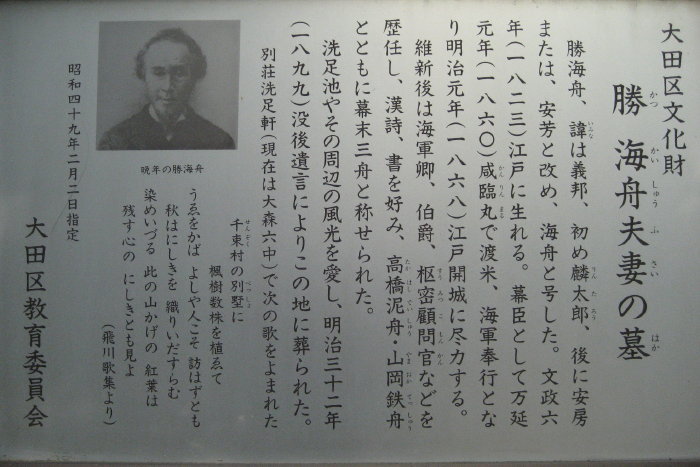 大田区文化財
勝海舟夫妻の墓
かつ かい しゅう ふ さい はか
勝海舟、諱は義邦、初め麟太郎、後に安房
いみな りん た ろう
または、安芳と改め、海舟と号した。文政六
年(一八二三)江戸に生れる。幕臣として万延
元年(一八六〇)咸臨丸で渡米、海軍奉行とな
かん りん まる
り明治元年(一八六八)江戸開城に尽力する。
維新後は海軍卿、伯爵、枢密顧問官などを
すう みつ こ もん かん
歴任し、漢詩、書を好み、高橋泥舟・山岡鉄舟
たか はし でい しゅう やま おか てっ しゅう
とともに幕末三舟と称せられた。
洗足池やその周辺の風光を愛し、明治三十二年
(一八九九)没後遺言によりこの地に葬られた。
別荘洗足軒(現在は大森六中)で次の歌をよまれた
千束村の別墅に
せんぞく べっしょ
楓樹数株を植ゑて
うゑをかば よしや人こそ 訪はずとも
秋はにしきを 織りいだすらむ
染めいづる 此の山かげの 紅葉は
残す心の にしきとも見よ
(飛川歌集より)
晩年の勝海舟
昭和四十九年二月二日指定
大田区教育委員会